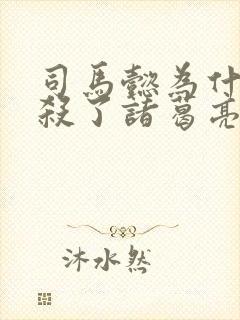 司馬懿為什
殺了諸葛亮
沐水然